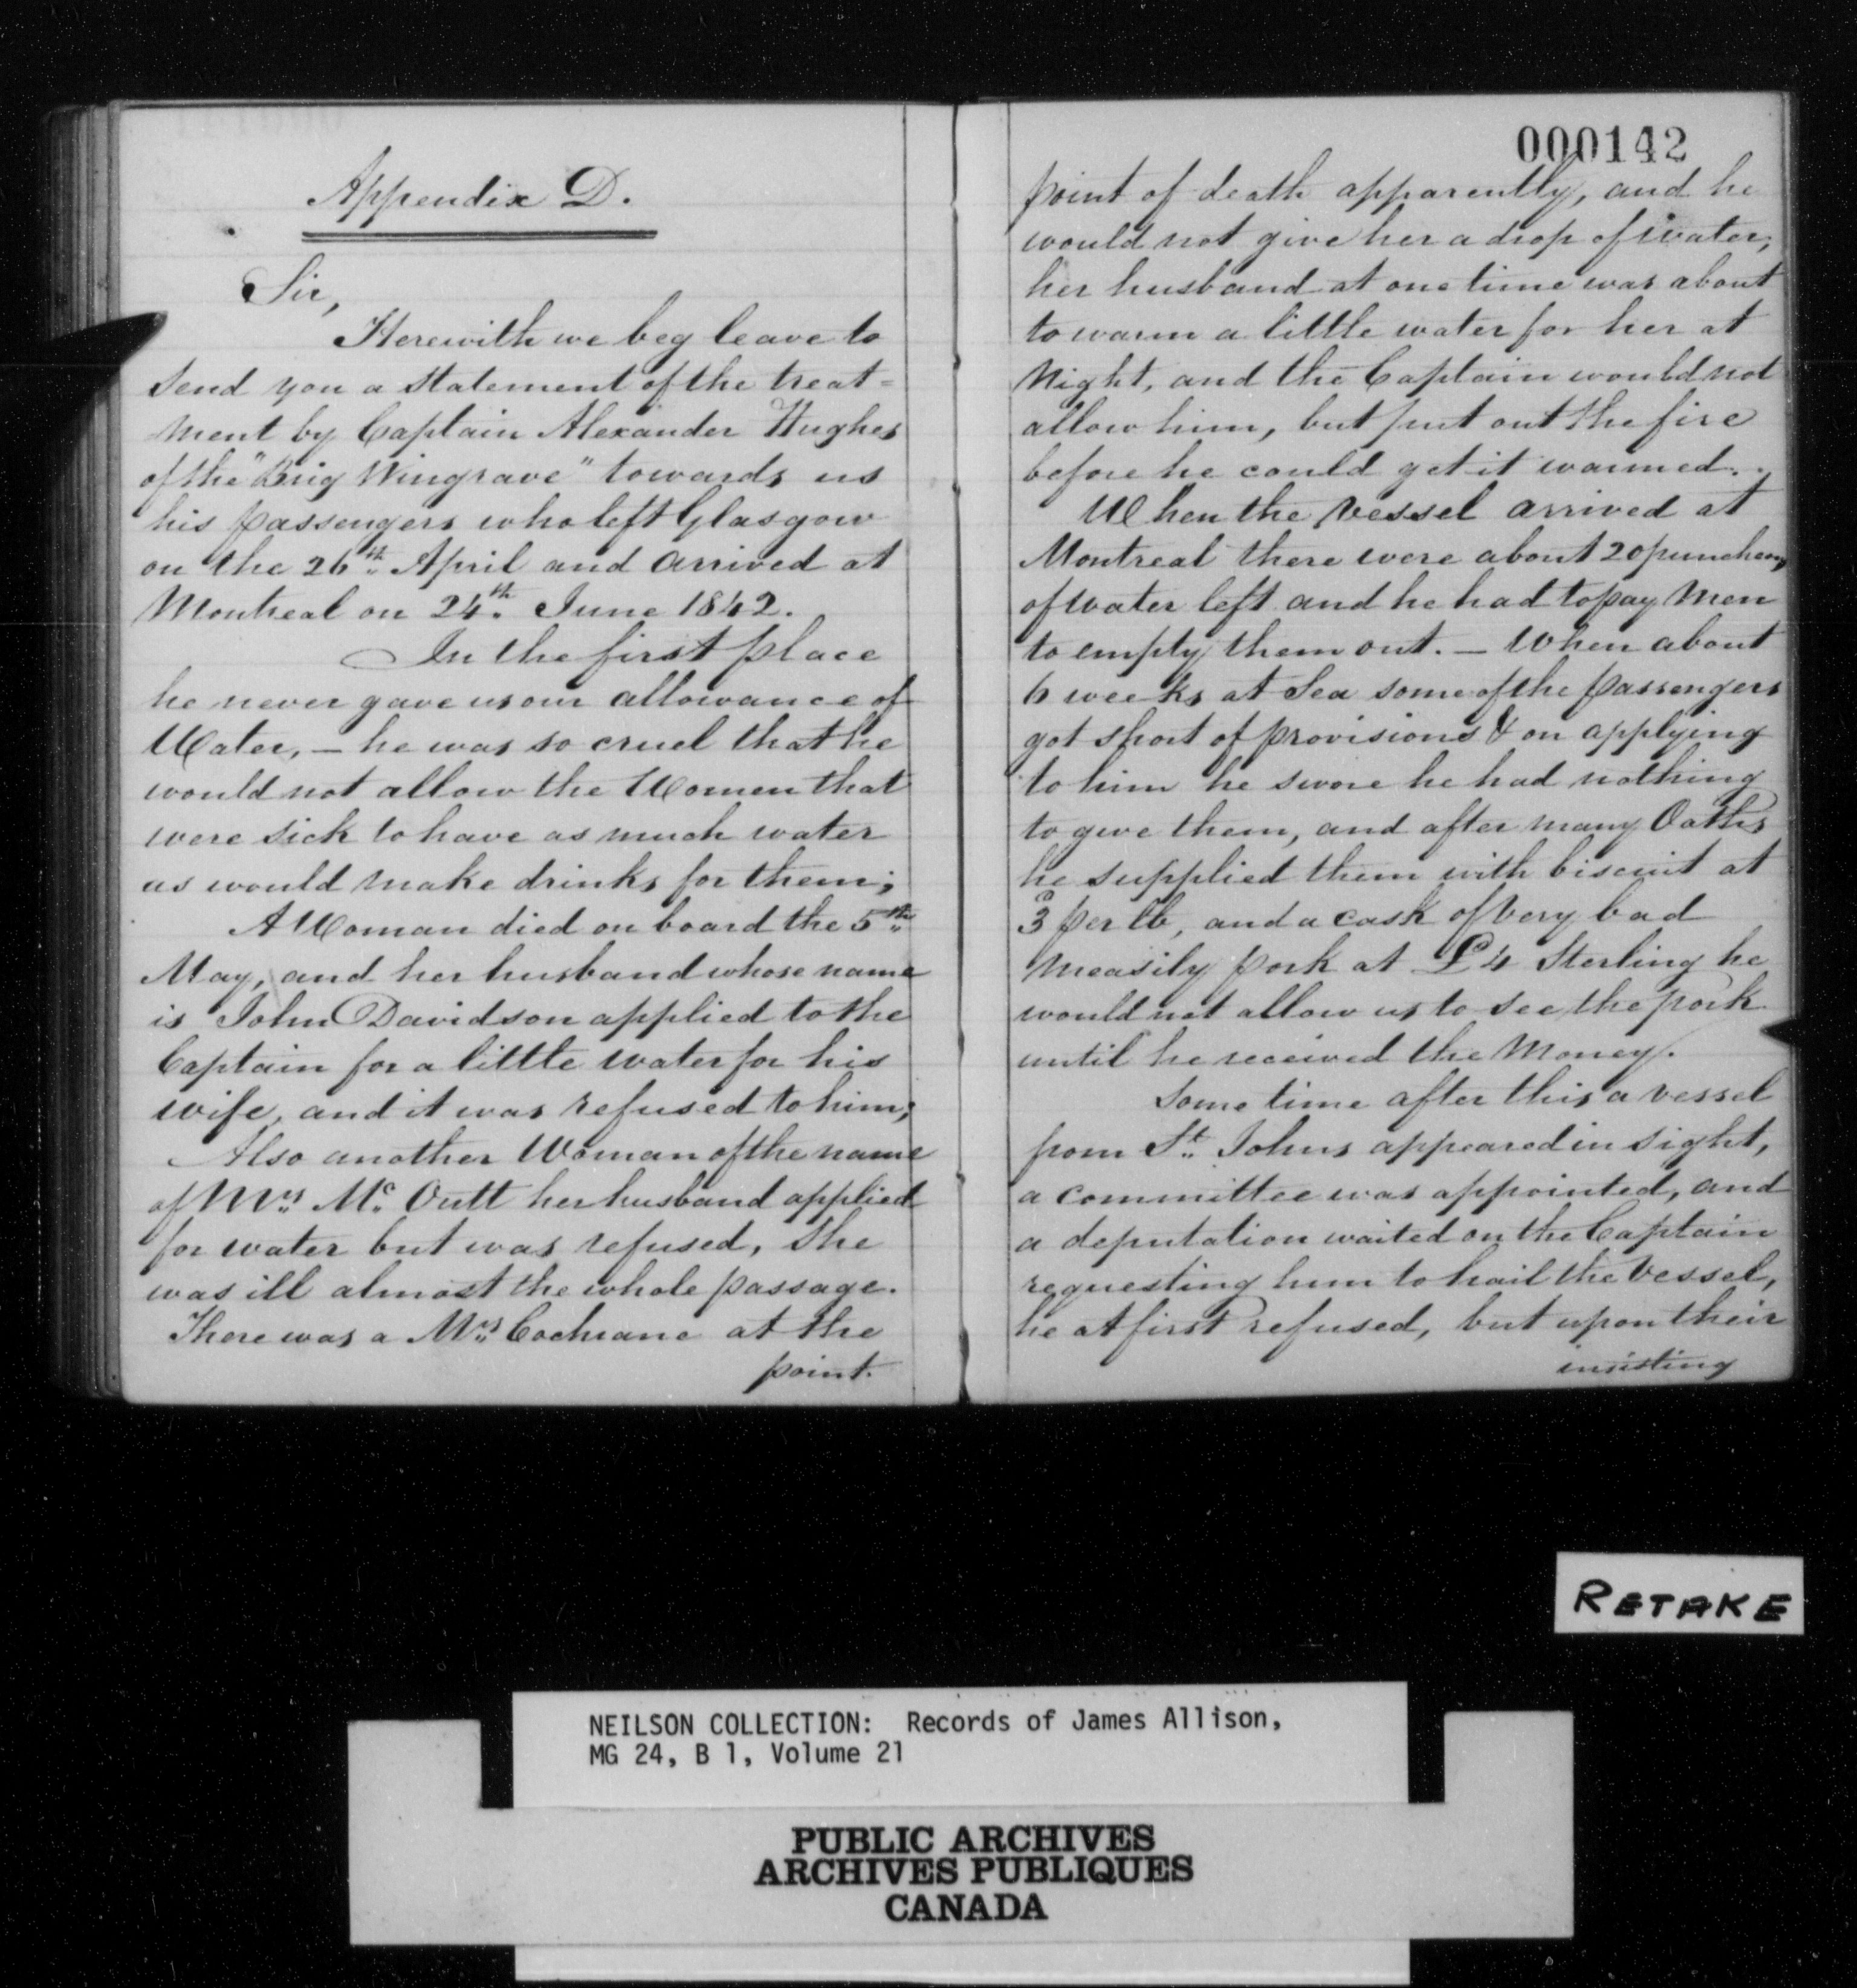 Appendix D.
Sir,
Herewith we beg leave to
send you a statement of the treat=
ment by Captain Alexander Hughes
of the "Brig Wingrave" towards us
his passengers who left Glasgow
on the 26th April and arrived at
Montreal on 24th June 1842.
In the first place
he never gave us our allowance of
Water, — he was so cruel that he
would not allow the Women that
were sick to have as much water
as would make drinks for them;
A Woman died on board the 5th
May, and her husband whose name
is John Davidson applied to the
Captain for a little water for his
wife, and it was refused to him;
Also another Woman of the name
of Mrs Mc Outt her husband applied
for water but was refused, She
was ill almost the whole passage.
There was a Mrs Cochrane at the
point.
000142
point of death apparently, and he
would not give her a drop of water;
her husband at one time was about
to warm a little water for her at
Night, and the Captain would not
allow him, but put out the fire
before he could get it warmed.
When the vessel arrived at
Montreal there were about 20 puncheons
of water left and he had to pay men
to empty them out. — When about
6 weeks at Sea some of the passengers
got short of provisions & on applying
to him he swore he had nothing
to give them, and after many Oaths
he supplied them with biscuit at
3d per lb, and a cask of very bad
measily pork at £4 Sterling he
would not allow us to see the pork
until he received the Money.
Some time after this a vessel
from St Johns appeared in sight,
a committee was appointed, and
a deputation waited on the Captain
requesting him to hail the Vessel,
he at first refused, but upon their
insisting
RETAKE
NEILSON COLLECTION: Records of James Allison,
MG 24, B 1, Volume 21
PUBLIC ARCHIVES
ARCHIVES PUBLIQUES
CANADA